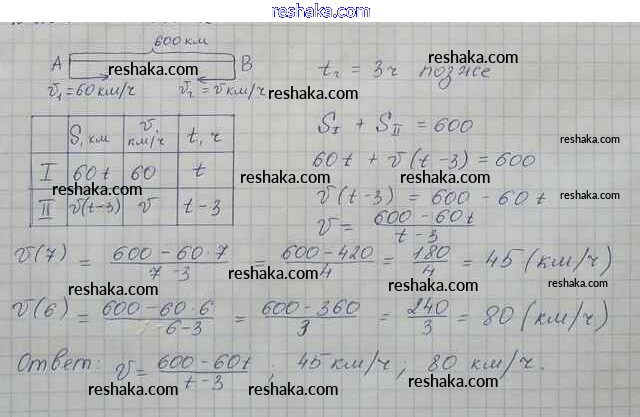 www.reshaka.com
600 км
A B
reshaka.com
v₁ = 60 км/ч v₂ = v км/ч
reshaka.com
t₂ = 3 ч позже
reshaka.com
S, км v, км/ч t, ч
I 60t 60 t
II v(t-3) v t-3
reshaka.com
S_I + S_II = 600
reshaka.com
60t + v(t-3) = 600
reshaka.com
v(t-3) = 600 - 60t
reshaka.com
v = (600 - 60t)/(t-3)
reshaka.com
v(7) = (600 - 60·7)/(7-3) = (600-420)/4 = 180/4 = 45 (км/ч)
reshaka.com
reshaka.com
reshaka.com
v(6) = (600-60·6)/(6-3) = (600-360)/3 = 240/3 = 80 (км/ч)
reshaka.com
reshaka.com
Ответ: v = (600-60t)/(t-3); 45 км/ч; 80 км/ч.
reshaka.com
reshaka.com
reshaka.com
www.reshaka.com